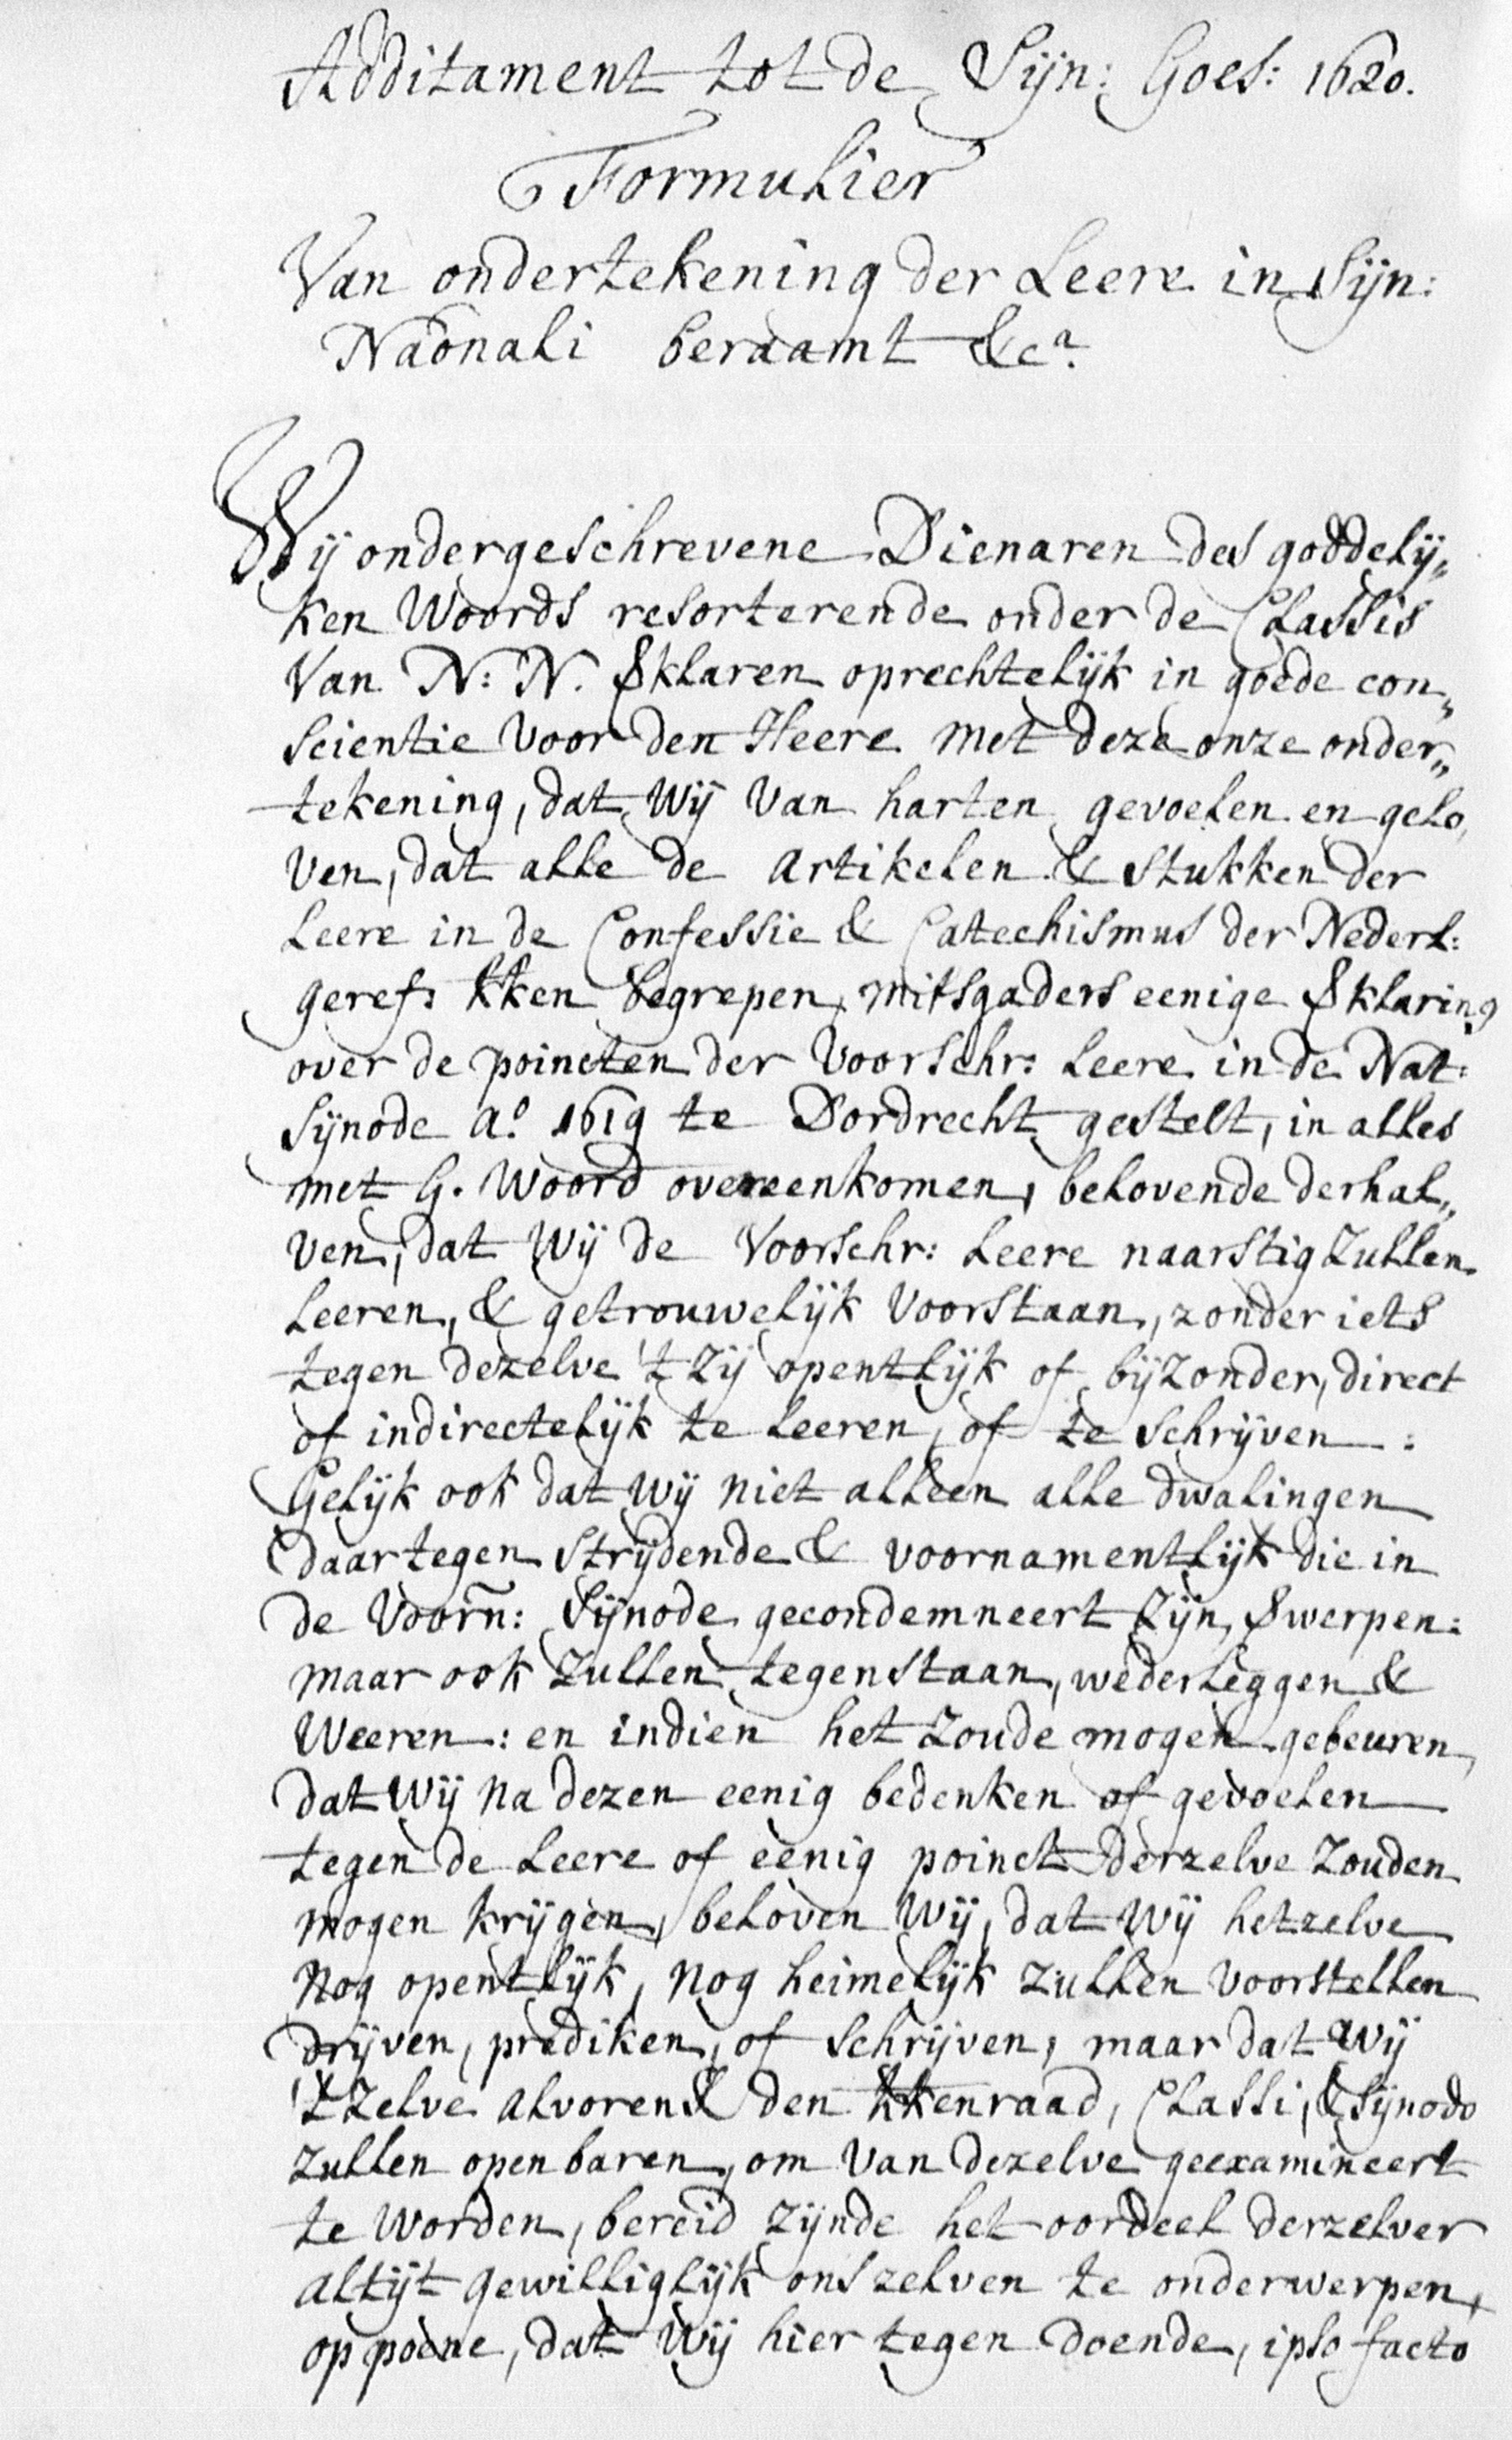 Additament tot de Sijn: Goes: 1620.
Formulier
Van ondertekening der Leere in Sijn:
Naõnali beraamt &ca.
Wij ondergeschrevene Dienaren des goddelij„
ken Woords resorterende onder de Classis
Van N: N. Vklaren oprechtelijk in goede con„
scientie voor den Heere met deze onze onder„
tekening, dat wij van harten gevoelen en gelo„
ven, dat alle de artikelen & stukken der
Leere in de Confessie & Catechismus der Nederl:
geref: kken begrepen, mitsgaders eenige Vklaring
over de poincten der voorschr: Leere in de Nat:
Sijnode ao. 1619 te Dordrecht gestelt, in alles
met G. Woord overeenkomen, belovende derhal„
ven, dat wij de voorschr: Leere naarstig zullen
Leeren, & getrouwelijk voorstaan, zonder iets
tegen dezelve 't zij opentlijk of bijzonder, direct
of indirectelijk te Leeren, of te schrijven :
Gelijk ook dat wij niet alleen alle dwalingen
daartegen strijdende & voornamentlijk die in
de voorñ: Sijnode gecondemneert zijn, Vwerpen:
maar ook zullen tegenstaan, wederleggen &
Weeren: en indien het zoude mogen gebeuren,
dat wij na dezen eenig bedenken of gevoelen
tegen de Leere of eenig poinct derzelve zouden
mogen krijgen, beloven wij, dat wij hetzelve
nog opentlijk, nog heimelijk zullen voorstellen
drijven, prediken, of schrijven, maar dat wij
't zelve alvorens den kkenraad, Classi, & Sijnodo
zullen openbaren, om van dezelve geexamineert
te worden, bereid zijnde het oordeel derzelver
altijt gewilliglijk ons zelven te onderwerpen,
op poene, dat wij hier tegen doende, ipso facto